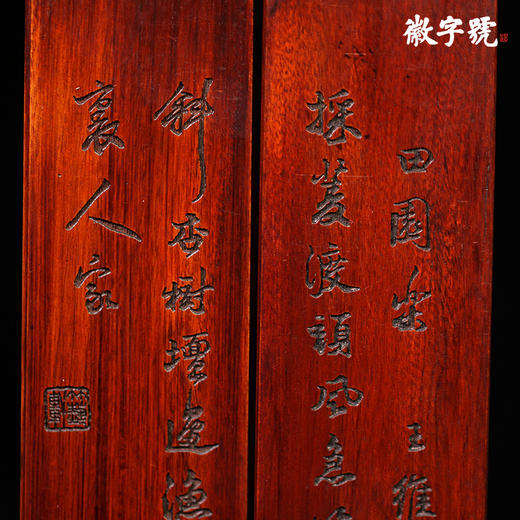 徽字號
田園樂 王維
採菱渡頭風急
斜杏樹壇邊漁
裏人家